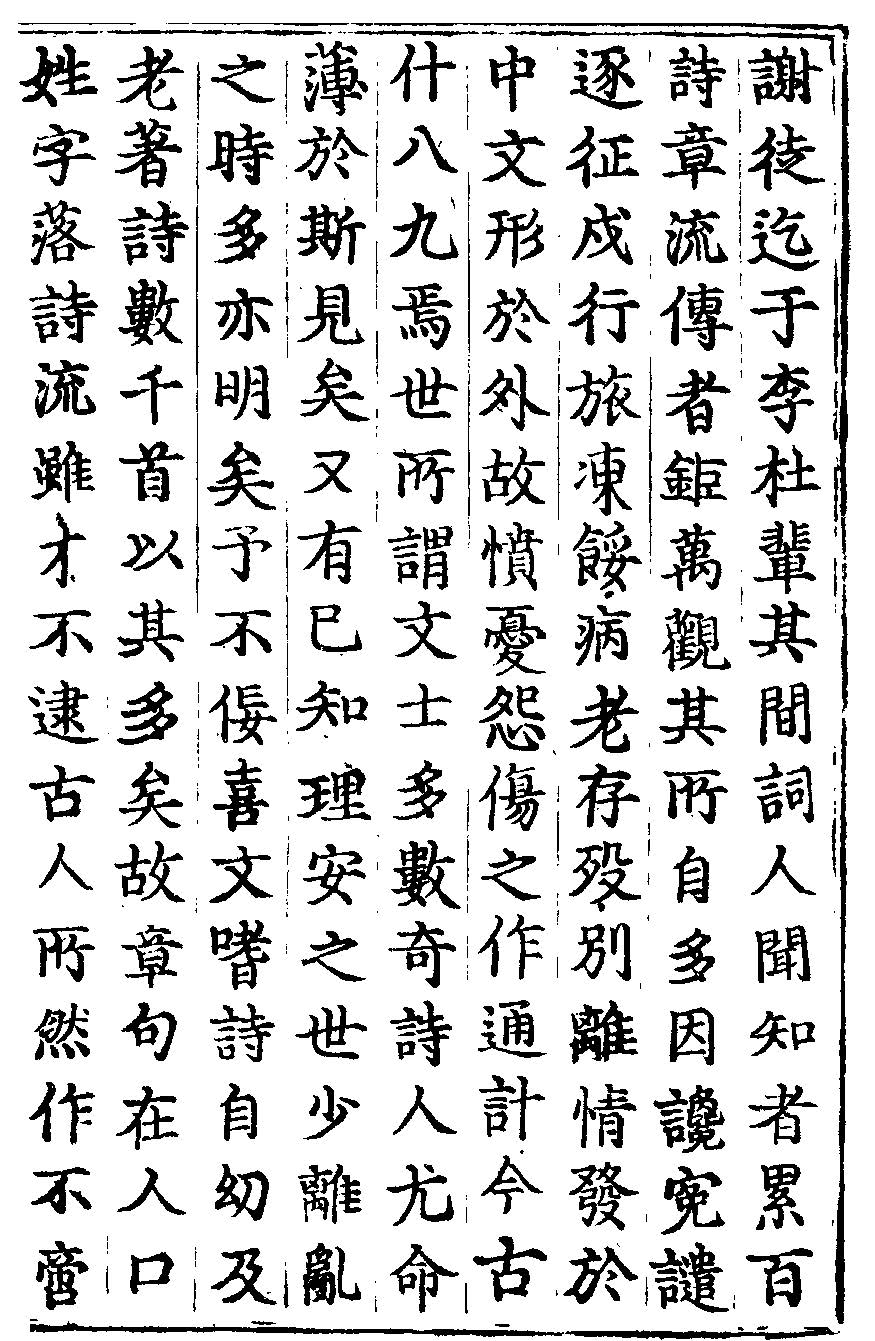 謝徒迄于李杜輩其間詞人聞知者累百
詩章流傳者鉅萬觀其所自多因讒寃譴
逐征戍行旅凍餒病老存歿別離情發於
中文形於外故憤憂怨傷之作通計今古
什八九焉世所謂文士多數奇詩人尤命
薄於斯見矣又有已知理安之世少離亂
之時多亦明矣予不佞喜文嗜詩自幼及
老著詩數千首以其多矣故章句在人口
姓字落詩流雖才不逮古人所然作不啻